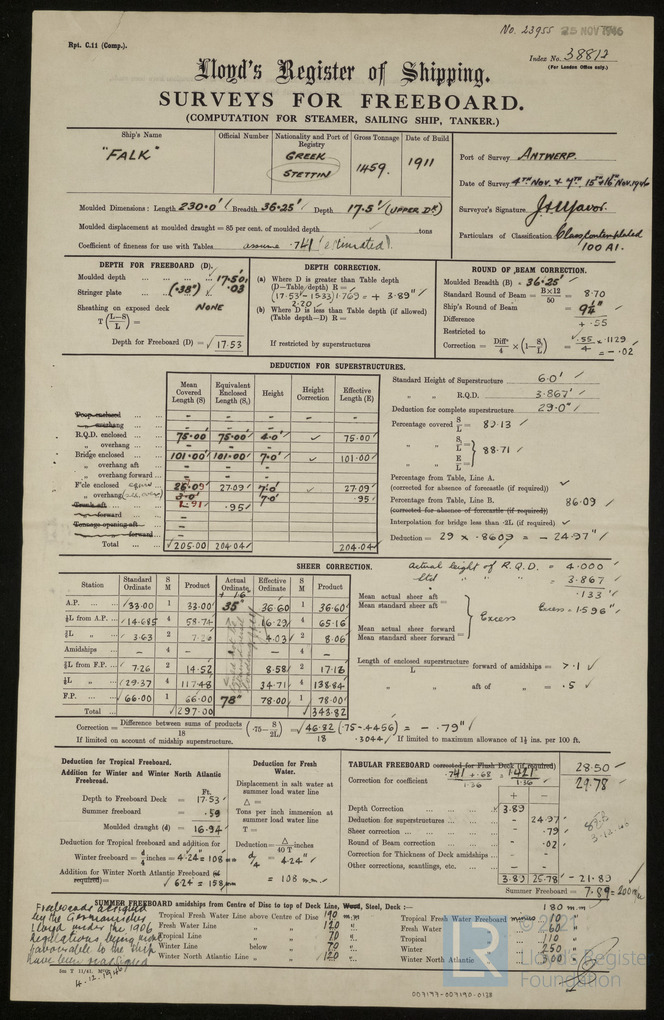 No. 23955 25 NOV 1946
Rpt. C.11 (Comp.).
Index No. 38812
(For London Office only.)
Lloyd's Register of Shipping.
SURVEYS FOR FREEBOARD.
(COMPUTATION FOR STEAMER, SAILING SHIP, TANKER.)
Ship's Name Official Number Nationality and Port of Registry Gross Tonnage Date of Build
"FALK" GREEK STETTIN 1459. 1911
Port of Survey ANTWERP.
Date of Survey 4TH NOV. & 7TH, 15TH & 16TH NOV. 1946
Surveyor's Signature
Particulars of Classification Class contemplated
100 A1.
Moulded Dimensions: Length 230.0' Breadth 36.25' Depth 17.5' (UPPER DK)
Moulded displacement at moulded draught = 85 per cent. of moulded depth tons
Coefficient of fineness for use with Tables assume .741 (estimated).
DEPTH FOR FREEBOARD (D).
Moulded depth 17.50
Stringer plate (.38") .03
Sheathing on exposed deck NONE
T (L-S/L) =
Depth for Freeboard (D) = 17.53
DEPTH CORRECTION.
(a) Where D is greater than Table depth
(D-Table depth) R =
(17.53-15.33) 1.769 = + 3.89"
2.20
(b) Where D is less than Table depth (if allowed)
(Table depth-D) R =
If restricted by superstructures
ROUND OF BEAM CORRECTION.
Moulded Breadth (B) = 36.25'
Standard Round of Beam = B×12/50 = 8.70
Ship's Round of Beam = 9¼"
Difference + .55
Restricted to
Correction = Diffce/4 × (1-S1/L) = .55/4 × .1129
= - .02
DEDUCTION FOR SUPERSTRUCTURES.
Mean Covered Length (S) Equivalent Enclosed Length (S1) Height Height Correction Effective Length (E)
Poop enclosed - - - -
" overhang - - - -
R.Q.D. enclosed 75.00' 75.00' 4.0' ✓ 75.00
" overhang - -
Bridge enclosed 101.00' 101.00' 7.0' ✓ 101.00
" overhang aft -
" overhang forward -
F'cle enclosed 25.09' 27.09 7.0' ✓ 27.09
" overhang 3.0' 1.91 .95 7.0' .95
Trunk aft
" forward -
Tonnage opening aft -
" forward -
Total 205.00 204.04 204.04
Standard Height of Superstructure 6.0'
" " R.Q.D. 3.867'
Deduction for complete superstructure 29.0"
Percentage covered S/L = 89.13
" " S1/L =
" " E/L = 88.71
Percentage from Table, Line A.
(corrected for absence of forecastle (if required))
Percentage from Table, Line B. 86.09
(corrected for absence of forecastle (if required))
Interpolation for bridge less than .2L (if required)
Deduction = 29 × .8609 = - 24.97"
SHEER CORRECTION.
Station Standard Ordinate S M Product Actual Ordinate Effective Ordinate S M Product
+ 16"
A.P. 33.00 1 33.00 35" 36.60 1 36.60
⅙L from A.P. 14.685 4 58.74 16.29 4 65.16
⅓L " 3.63 2 7.26 4.03 2 8.06
Amidships - 4 - 4 -
⅓L from F.P. 7.26 2 14.52 8.58 2 17.16
⅙L " 29.37 4 117.48 34.71 4 138.84
F.P. 66.00 1 66.00 78" 78.00 1 78.00
Total 297.00 343.82
Actual height of R.Q.D. = 4.000
Std " " " = 3.867
.133
Mean actual sheer aft
Mean standard sheer aft =
Excess Excess = 1.596"
Mean actual sheer forward
Mean standard sheer forward =
Length of enclosed superstructure
L forward of amidships = > .1
" L aft of " = .5
Correction = Difference between sums of products/18 (.75 - S/2L) = 46.82/18 (.75-.4456) = - .79"
.3044
If limited on account of midship superstructure. If limited to maximum allowance of 1½ ins. per 100 ft.
Deduction for Tropical Freeboard.
Addition for Winter and Winter North Atlantic Freeboard.
Ft.
Depth to Freeboard Deck = 17.53
Summer freeboard = .59
Moulded draught (d) = 16.94
Deduction for Tropical freeboard and addition for
Winter freeboard = d/4 inches = 4.24" = 108 mm
Addition for Winter North Atlantic Freeboard (if
required) = 6.24 = 158 mm
Deduction for Fresh Water.
Displacement in salt water at summer load water line
Δ =
Tons per inch immersion at summer load water line
T =
Deduction = Δ/40 T inches
d/4 = 4.24"
= 108 mm.
TABULAR FREEBOARD corrected for Flush Deck (if required) 28.50
Correction for coefficient .741 + .68/1.36 = 1.421/1.36 29.78
+ -
Depth Correction 3.89 -
Deduction for superstructures - 24.97
Sheer correction - .79
Round of Beam correction - .02
Correction for Thickness of Deck amidships - -
Other corrections, scantlings, etc. - -
3.89 25.78 - 21.89
Summer Freeboard = 7.89 = 200 m/m
3.12.46
SUMMER FREEBOARD amidships from Centre of Disc to top of Deck Line, Wood, Steel, Deck:— 180 mm
Tropical Fresh Water Line above Centre of Disc 190 m.m
Fresh Water Line " " 120 "
Tropical Line " " 70 "
Winter Line below " 70 "
Winter North Atlantic Line " " 120 "
Tropical Fresh Water Freeboard minus 10 m.m
Fresh Water " 60 "
Tropical " 110 "
Winter " 250 "
Winter North Atlantic " 300 "
Freeboards assigned
by the Germanischer
Lloyd under the 1906
Regulations being more
favourable to the ship
have been reassigned
4.12.1946
© 2021
LR
Lloyd's Register
Foundation
007197-007190-0128